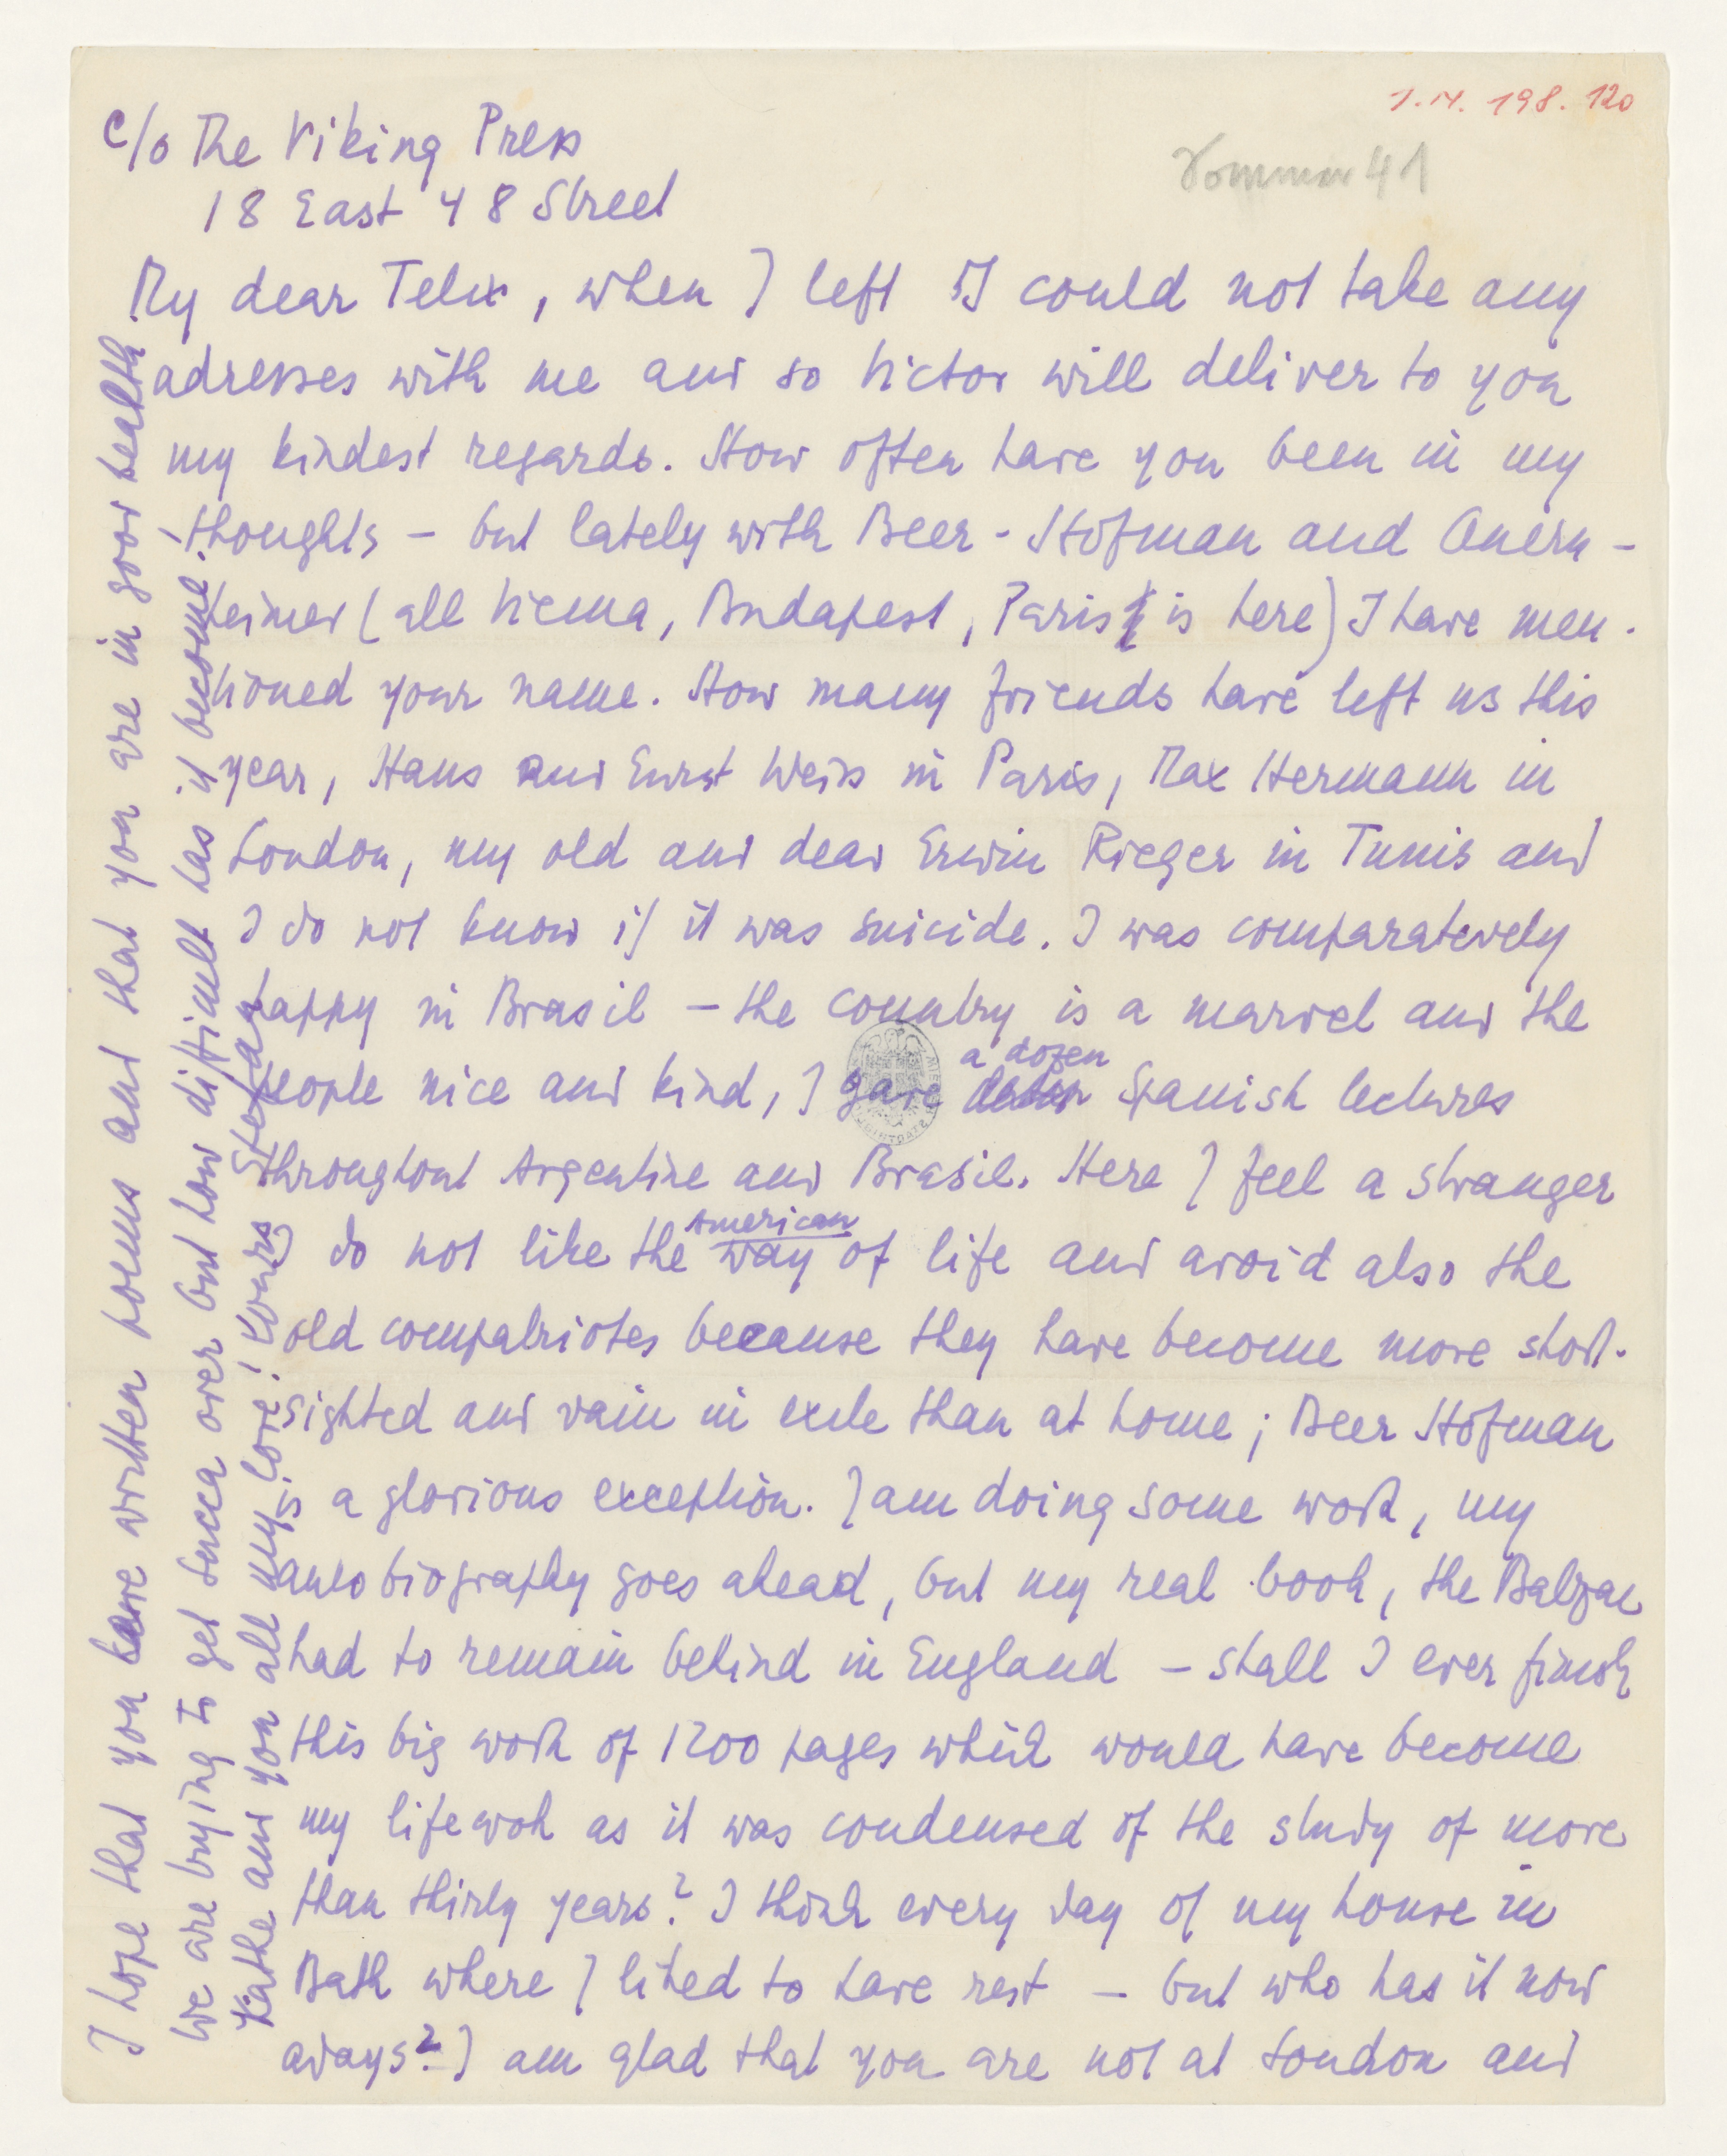 I.N. 198.120
Sommer 41
c/o The Viking Press
18 East 48 Street
My dear Felix, when I left I could not take any
adresses with me and so Victor will deliver to you
my kindest regards. How often have you been in my
thoughts – but lately with Beer-Hofman and Auern-
heimer (all Vienna, Budapest, Paris is here) I have men-
tioned your name. How many friends have left us this
year, Hans and Ernst Weiss in Paris, Max Hermann in
London, my old and dear Erwin Rieger in Tunis and
I do not know if it was suicide. I was comparatevely
happy in Brasil – the country is a marvel and the
people nice and kind, I gave a dozen Spanish lectures
throughout Argentine and Brasil. Here I feel a stranger
do not like the American way of life and avoid also the
old compatriotes because they have become more short-
sighted and vain in exile than at home; Beer Hofman
is a glorious exception. I am doing some work, my
autobiography goes ahead, but my real book, the Balzac
had to remain behind in England – shall I ever finish
this big work of 1200 pages which would have become
my lifework as it was condensed of the study of more
than thirty years? I think every day of my house in
Bath where I liked to have rest – but who has it now
adays? I am glad that you are not at London and
I hope that you have written poems and that you are in good health.
We are trying to get Lucca over but how difficult has it become!
Kathe and you all my love! Yours Stefan